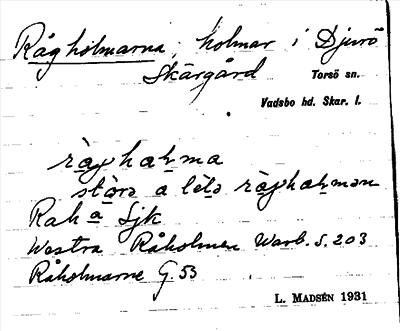 Rågholmarna, holmar i Djurö
Skärgård Torsö sn.
Vadsbo hd. Skar. l.
ràghaḷma
stòra a lela ràghaḷmən
Rah a Sjk
Westra Råholmen Warb. S. 203
Råholmarne G. 53
L. MADSÉN 1931